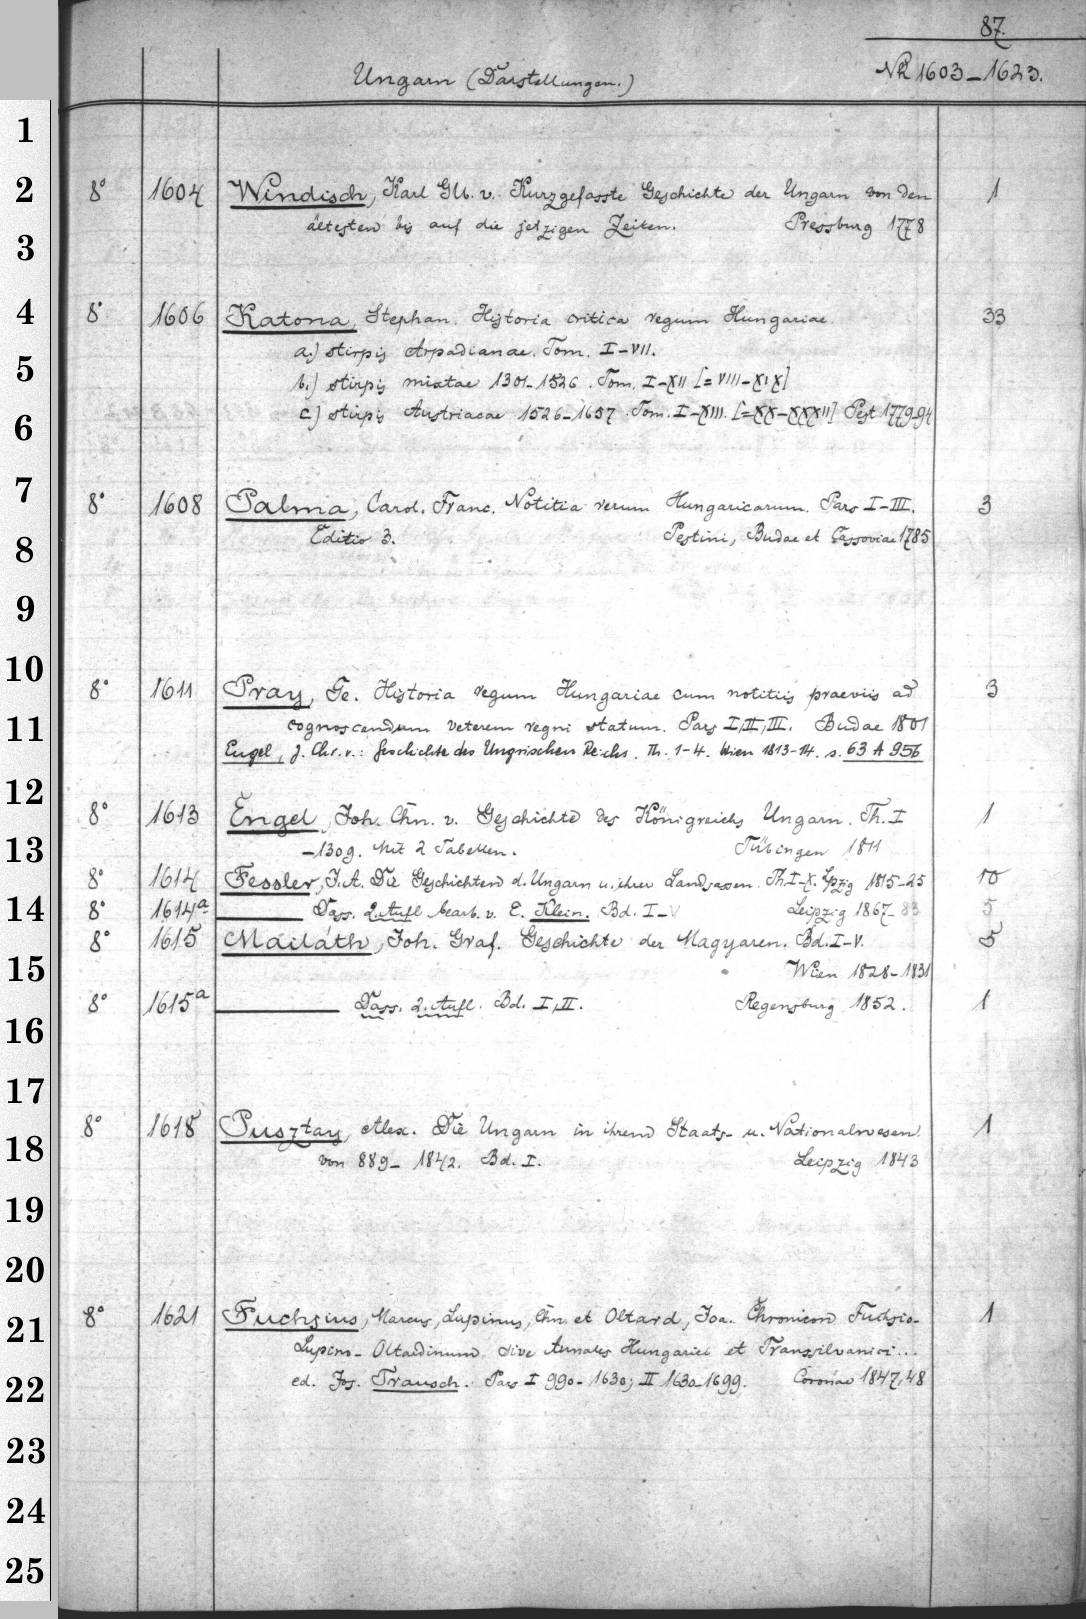 87.
Ungarn (Darstellungen.) Nr 1603-1623.
1
2 8° 1604 Windisch, Karl Glb. v. Kurzgefasste Geschichte der Ungarn von den 1
ältesten bis auf die jetzigen Zeiten. Pressburg 1778
3
4 8° 1606 Katona, Stephan. Historia critica regum Hungariae 33
a.) stirpis Arpadianae. Tom. I-VII.
5 b.) stirpis mixtae 1301-1526. Tom. I-XII [=VIII-XIX]
6 c.) stirpis Austriacae 1526-1657. Tom. I-XIII. [=XX-XXXII] Pest 1779-94
7 8° 1608 Palma, Carol. Franc. Notitia rerum Hungaricarum. Pars I-III. 3
8 Editio 3. Pestini, Budae et Cassoviae 1785
9
10 8° 1611 Pray, Ge. Historia regum Hungariae cum notitiis praeviis ad 3
11 cognoscendum veterem regni statum. Pars I,II,III. Budae 1801
Engel, J. Chr. v.: Geschichte des Ungrischen Reichs. Th. 1-4. Wien 1813-14. s. 63 A 956
12 8° 1613 Engel, Joh. Chn. v. Geschichte des Königreichs Ungarn. Th. I 1
13 -1309. Mit 2 Tabellen. Tübingen 1811
8° 1614 Fessler, J. A. Die Geschichten d. Ungarn u. ihrer Landsassen. Th. I-X. Lpzig 1815-25 10
14 8° 1614a Dass. 2. Aufl. bearb. v. E. Klein. Bd. I-V Leipzig 1867-83 5
8° 1615 Mailáth, Joh. Graf. Geschichte der Magyaren. Bd. I-V. 5
15 Wien 1828-1831
8° 1615a Dass. 2. Aufl. Bd. I,II. Regensburg 1852. 1
16
17
18 8° 1618 Pusztay, Alex. Die Ungarn in ihrem Staats- u. Nationalwesen 1
von 889-1842. Bd. I. Leipzig 1843
19
20
21 8° 1621 Fuchsius, Marcus, Lupinus, Chn. et Oltard, Joa. Chronicon Fuchsio- 1
Lupino-Oltardinum sive Annales Hungarici et Transsilvanici...
22 ed. Jos. Trausch. Pars I 990-1630; II 1630-1699. Coronae 1847,48
23
24
25